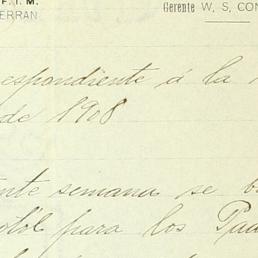 F. I. M.
ERRAN
Gerente W. S. CON
espondiente á la
de 1908
nte semana se
para los Pad